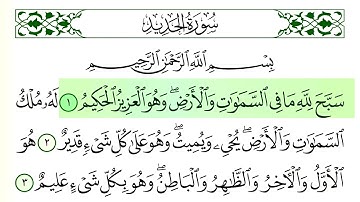 سُورَةُ الْحَدِيدِ
بِسْمِ اللَّهِ الرَّحْمَٰنِ الرَّحِيمِ
سَبَّحَ لِلَّهِ مَا فِي السَّمَٰوَٰتِ وَالْأَرْضِ ۖ وَهُوَ الْعَزِيزُ الْحَكِيمُ ١ لَهُ مُلْكُ
السَّمَٰوَٰتِ وَالْأَرْضِ ۖ يُحْيِي وَيُمِيتُ ۖ وَهُوَ عَلَىٰ كُلِّ شَيْءٍ قَدِيرٌ ٢ هُوَ
الْأَوَّلُ وَالْآخِرُ وَالظَّاهِرُ وَالْبَاطِنُ ۖ وَهُوَ بِكُلِّ شَيْءٍ عَلِيمٌ ٣